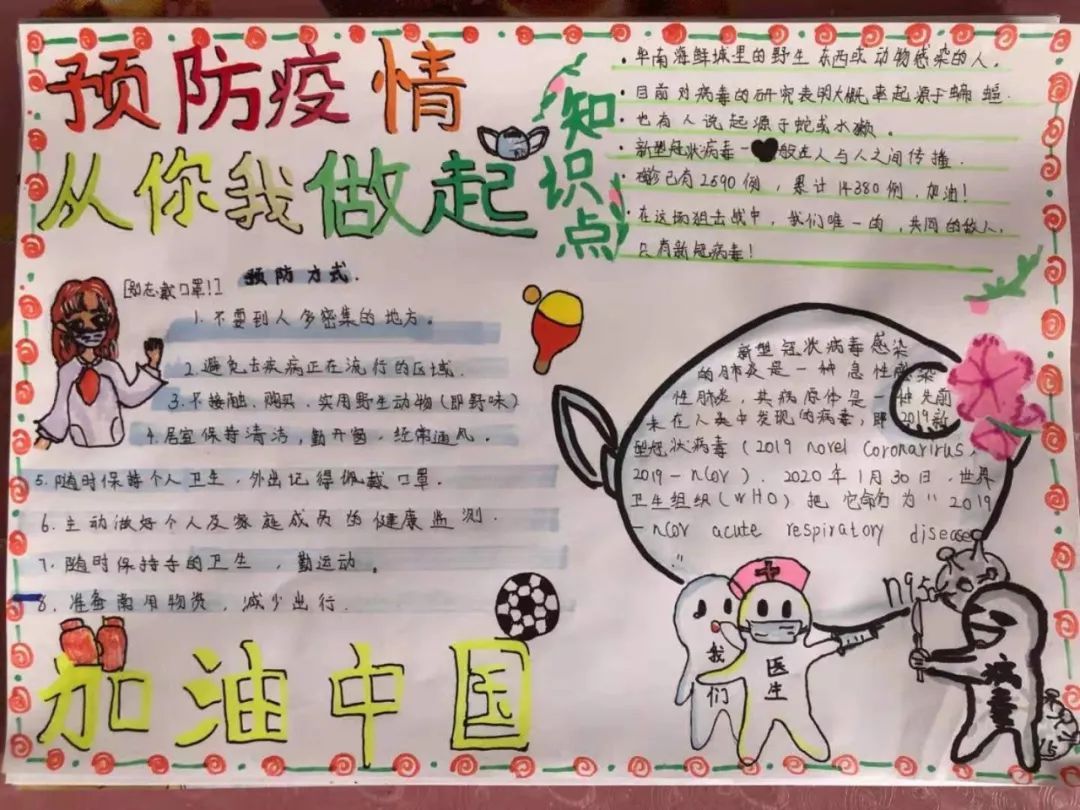 预防疫情
从你我做起
知识点
·华南海鲜城里的野生东西或动物感染的人.
·目前对病毒的研究表明大概率起源于蝙蝠.
·也有人说起源于蛇或水獭。
·新型冠状病毒一般在人与人之间传播.
已有2590例，累计14380例，加油！
·在这场狙击战中，我们唯一的，共同的敌人，
只有新冠病毒！
[别忘戴口罩!]
预防方式.
1.不要到人多密集的地方。
2.避免去疾病正在流行的区域.
3.不接触、购买、实用野生动物(即野味)
4.居室保持清洁,勤开窗,经常通风.
5.随时保持个人卫生,外出记得佩戴口罩.
6.主动做好个人及家庭成员的健康监测.
7.随时保持手的卫生,勤运动。
8.准备常用物资,减少出行.
加油中国
新型冠状病毒感染
的肺炎是一种急性感染
性肺炎,其病原体是一种先前
未在人类中发现的病毒,即2019新
型冠状病毒(2019 novel Coronarirus,
2019-nCov).2020年1月30日,世界
卫生组织(WHO)把它命名为"2019
-nCov acute respiratory disease
"
我们
医生
n95
病毒